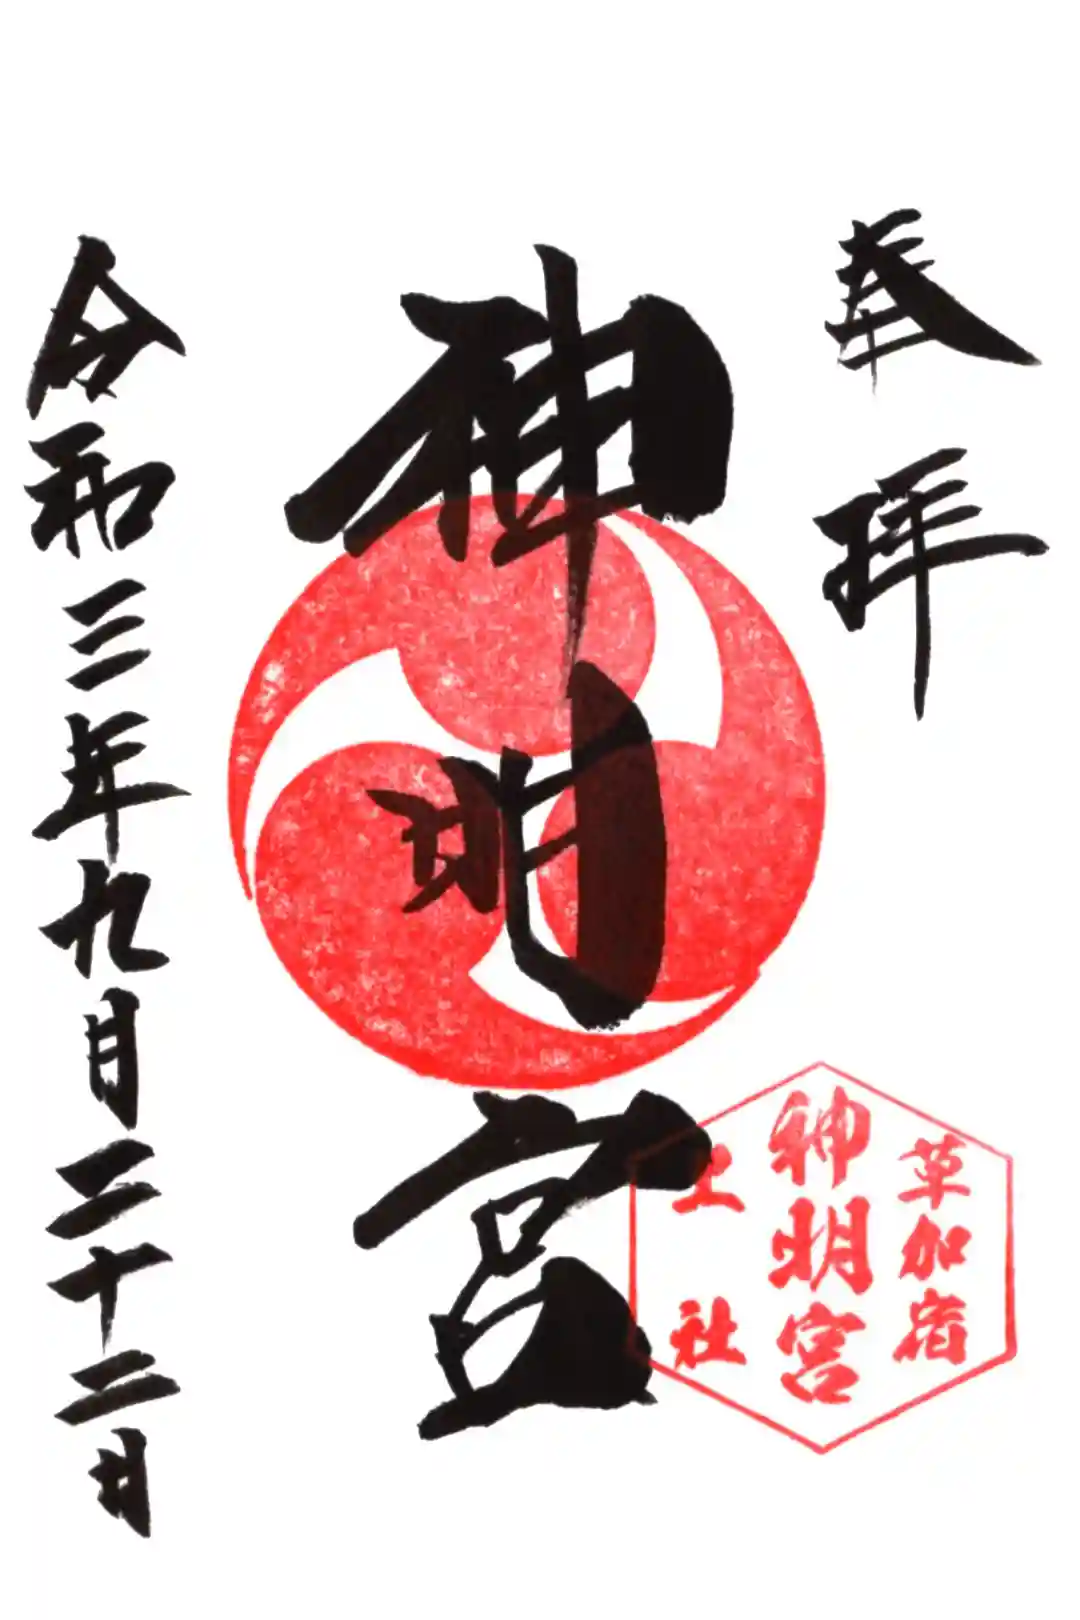 奉拝
神明宮
草加宿
神明宮
上社
令和三年九月二十二日